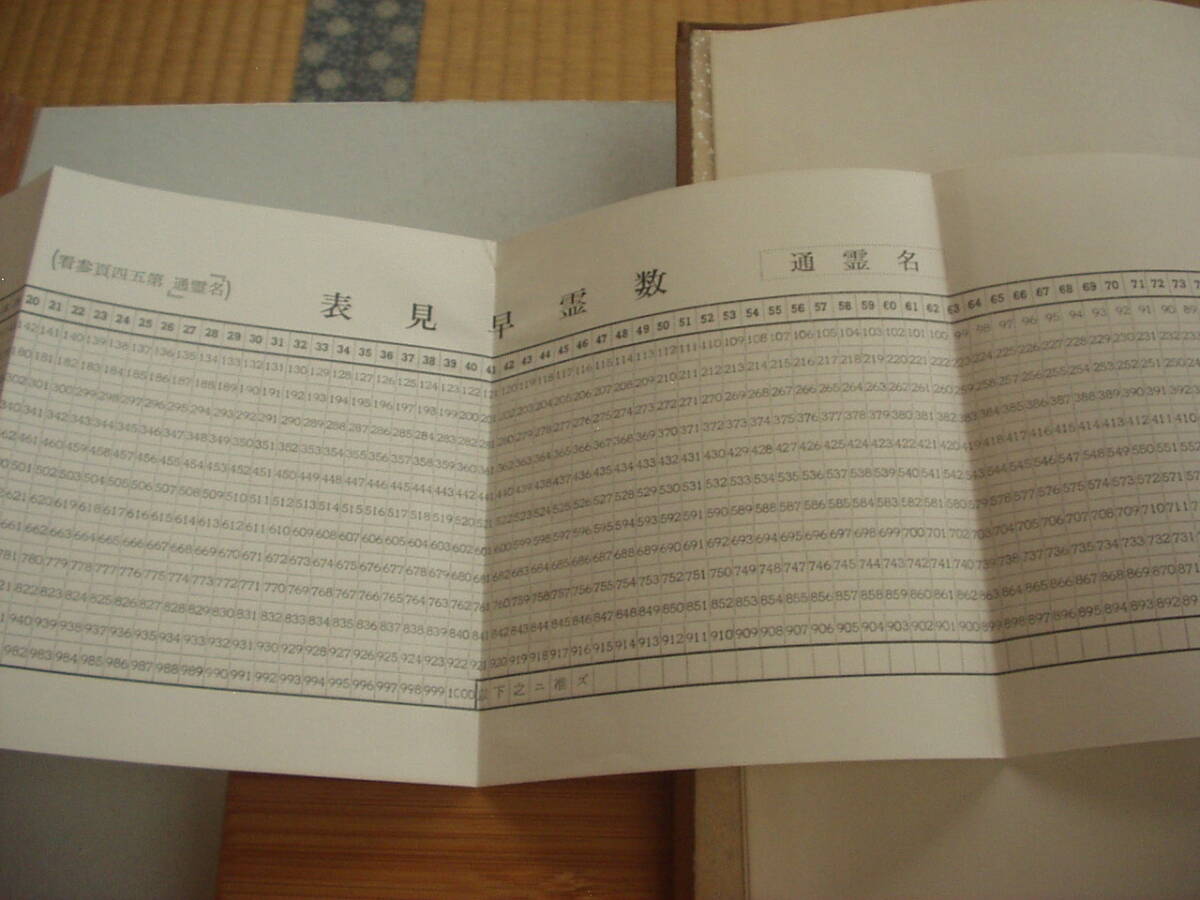 通霊名
数霊早見表
(「名霊通」第五四頁参看)
20 21 22 23 24 25 26 27 28 29 30 31 32 33 34 35 36 37 38 39 40 41 42 43 44 45 46 47 48 49 50 51 52 53 54 55 56 57 58 59 60 61 62 63 64 65 66 67 68 69 70 71 72 73
142 141 140 139 138 137 136 135 134 133 132 131 130 129 128 127 126 125 124 123 122 121 120 119 118 117 116 115 114 113 112 111 110 109 108 107 106 105 104 103 102 101 100 99 98 97 96 95 94 93 92 91 90 89
180 181 182 183 184 185 186 187 188 189 190 191 192 193 194 195 196 197 198 199 200 201 202 203 204 205 206 207 208 209 210 211 212 213 214 215 216 217 218 219 220 221 222 223 224 225 226 227 228 229 230 231 232
302 301 300 299 298 297 296 295 294 293 292 291 290 289 288 287 286 285 284 283 282 281 280 279 278 277 276 275 274 273 272 271 270 269 268 267 266 265 264 263 262 261 260 259 258 257 256 255 254 253 252 251 250
340 341 342 343 344 345 346 347 348 349 350 351 352 353 354 355 356 357 358 359 360 361 362 363 364 365 366 367 368 369 370 371 372 373 374 375 376 377 378 379 380 381 382 383 384 385 386 387 388 389 390 391 392
461 460 459 458 457 456 455 454 453 452 451 450 449 448 447 446 445 444 443 442 441 440 439 438 437 436 435 434 433 432 431 430 429 428 427 426 425 424 423 422 421 420 419 418 417 416 415 414 413 412 411 410
501 502 503 504 505 506 507 508 509 510 511 512 513 514 515 516 517 518 519 520 521 522 523 524 525 526 527 528 529 530 531 532 533 534 535 536 537 538 539 540 541 542 543 544 545 546 547 548 549 550 551 552
621 620 619 618 617 616 615 614 613 612 611 610 609 608 607 606 605 604 603 602 601 600 599 598 597 596 595 594 593 592 591 590 589 588 587 586 585 584 583 582 581 580 579 578 577 576 575 574 573 572 571
661 662 663 664 665 666 667 668 669 670 671 672 673 674 675 676 677 678 679 680 681 682 683 684 685 686 687 688 689 690 691 692 693 694 695 696 697 698 699 700 701 702 703 704 705 706 707 708 709 710 711
781 780 779 778 777 776 775 774 773 772 771 770 769 768 767 766 765 764 763 762 761 760 759 758 757 756 755 754 753 752 751 750 749 748 747 746 745 744 743 742 741 740 739 738 737 736 735 734 733 732 731
822 823 824 825 826 827 828 829 830 831 832 833 834 835 836 837 838 839 840 841 842 843 844 845 846 847 848 849 850 851 852 853 854 855 856 857 858 859 860 861 862 863 864 865 866 867 868 869 870 871
940 939 938 937 936 935 934 933 932 931 930 929 928 927 926 925 924 923 922 921 920 919 918 917 916 915 914 913 912 911 910 909 908 907 906 905 904 903 902 901 900 899 898 897 896 895 894 893
982 983 984 985 986 987 988 989 990 991 992 993 994 995 996 997 998 999 1000 以下之ニ准ズ